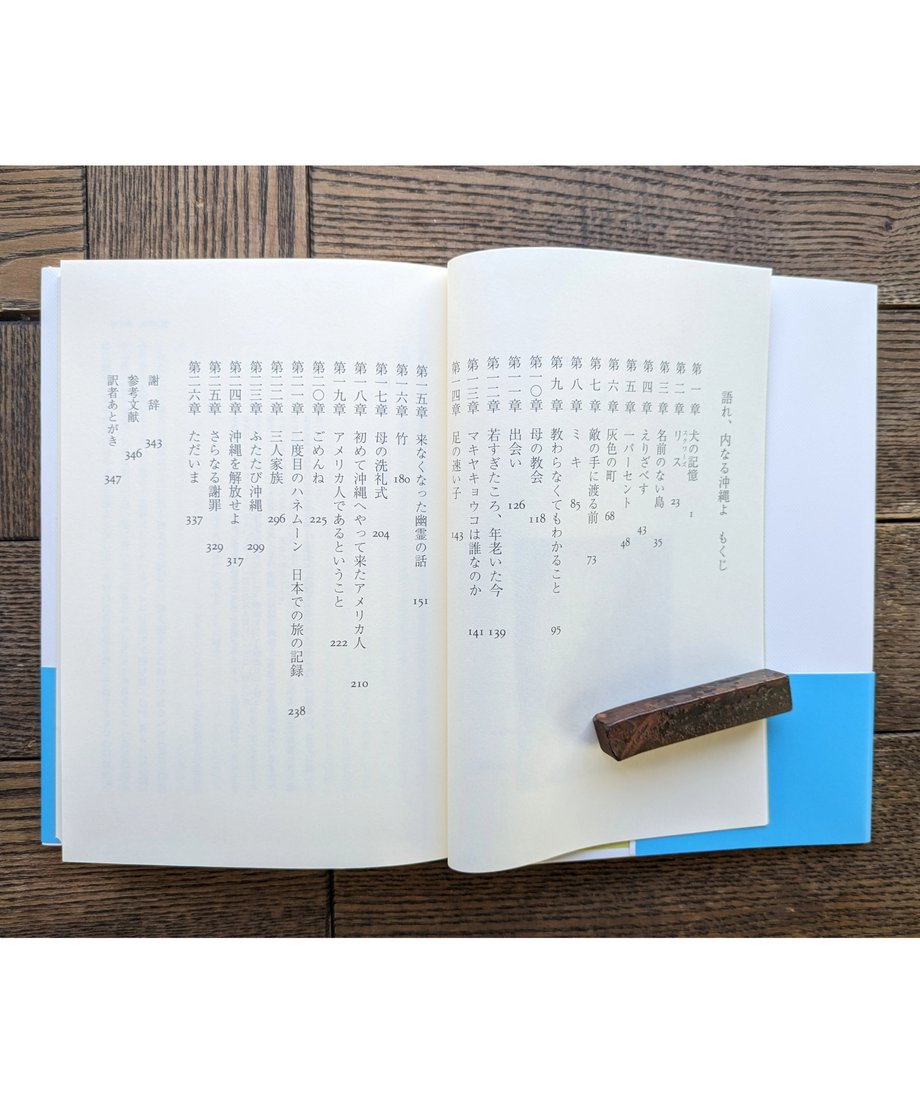 語れ、内なる沖縄よ　もくじ
第一章　犬の記憶　1
第二章　リス　23
第三章　名前のない島　35
第四章　えりざべす　43
第五章　一パーセント　48
第六章　灰色の町　68
第七章　敵の手に渡る前　73
第八章　ミキ　85
第九章　教わらなくてもわかること　95
第一〇章　母の教会　118
第一一章　出会い　126
第一二章　若すぎたころ、年老いた今　139
第一三章　マキヤキョウコは誰なのか　141
第一四章　足の速い子　143
第一五章　来なくなった幽霊の話　151
第一六章　竹　180
第一七章　母の洗礼式　204
第一八章　初めて沖縄へやって来たアメリカ人　210
第一九章　アメリカ人であるということ　222
第二〇章　ごめんね　225
第二一章　二度目のハネムーン　日本での旅の記録　238
第二二章　三人家族　296
第二三章　ふたたび沖縄　299
第二四章　沖縄を解放せよ　317
第二五章　さらなる謝罪　329
第二六章　ただいま　337
謝辞　343
参考文献　346
訳者あとがき　347